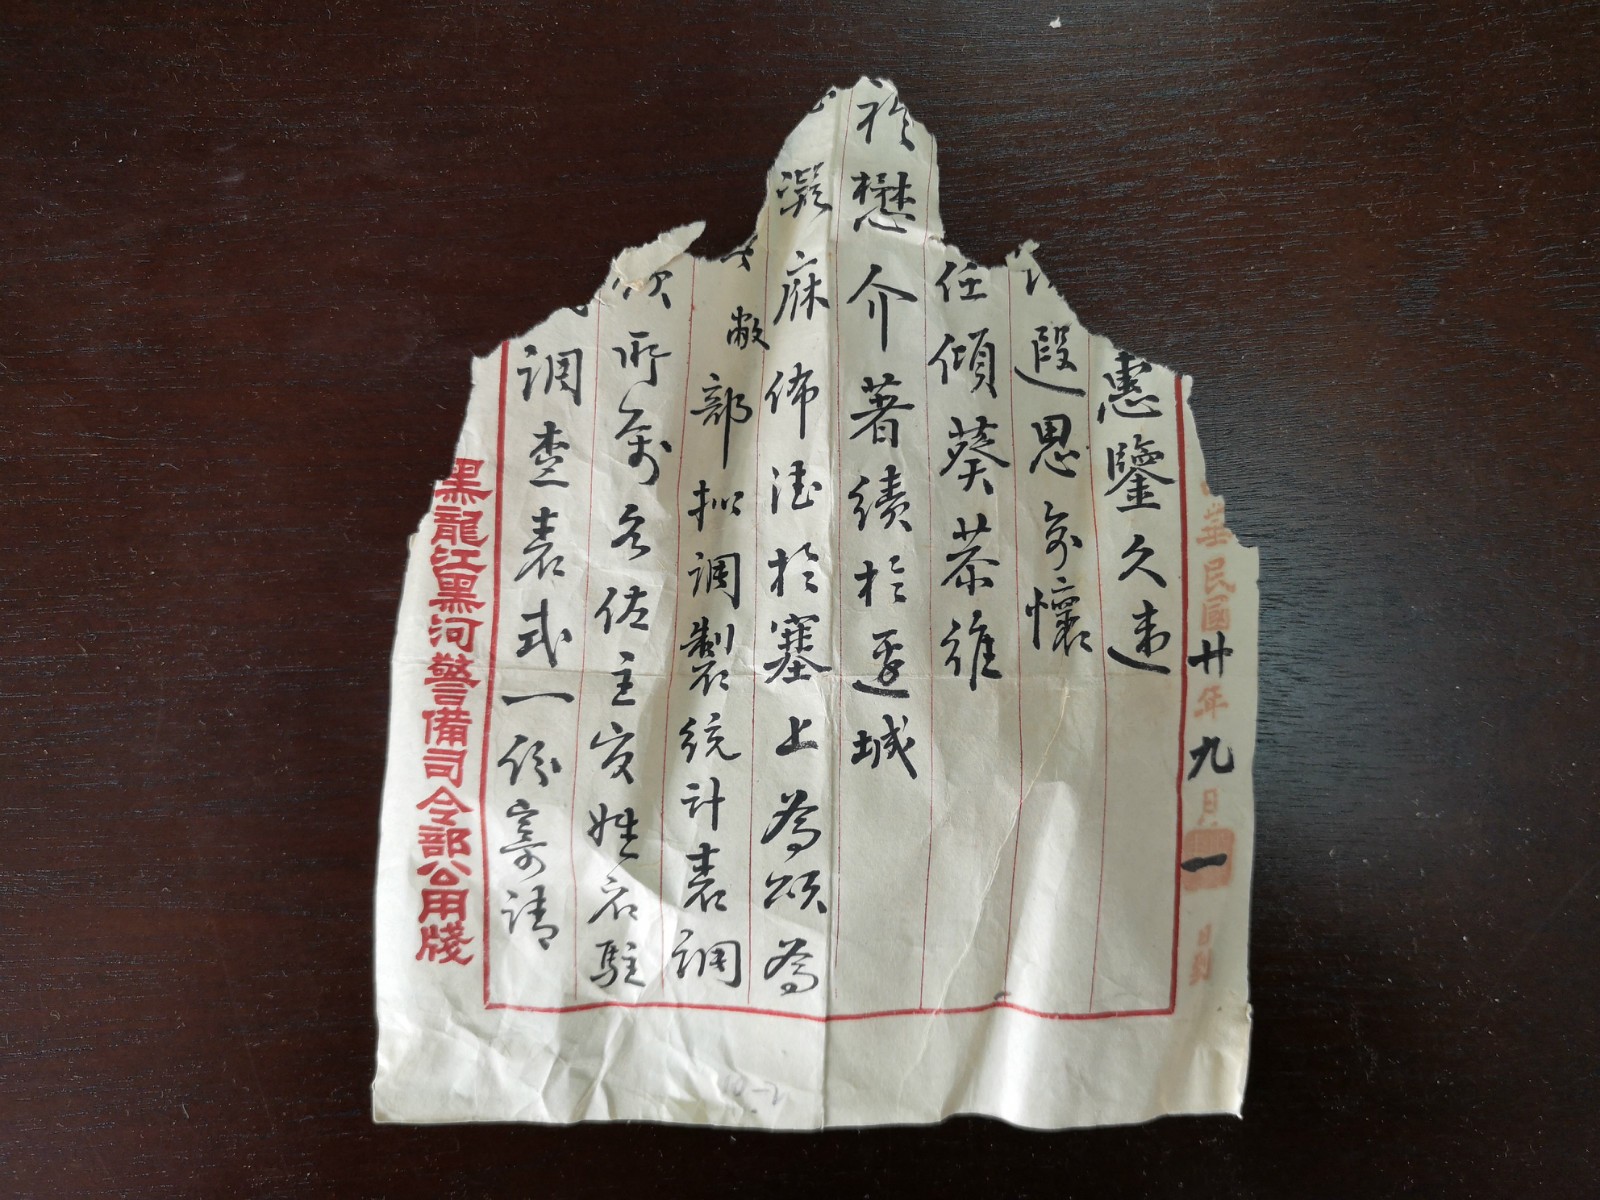 華民國廿年九月一日到
惠鑒久違
遐思弥懷
任傾葵恭維
於懋介著績於邊城
凝庥佈德於塞上為頌為
敝部擬調製統計表調
所属各佐主官姓名駐
調查表式一份寄請
黑龍江黑河警備司令部公用牋